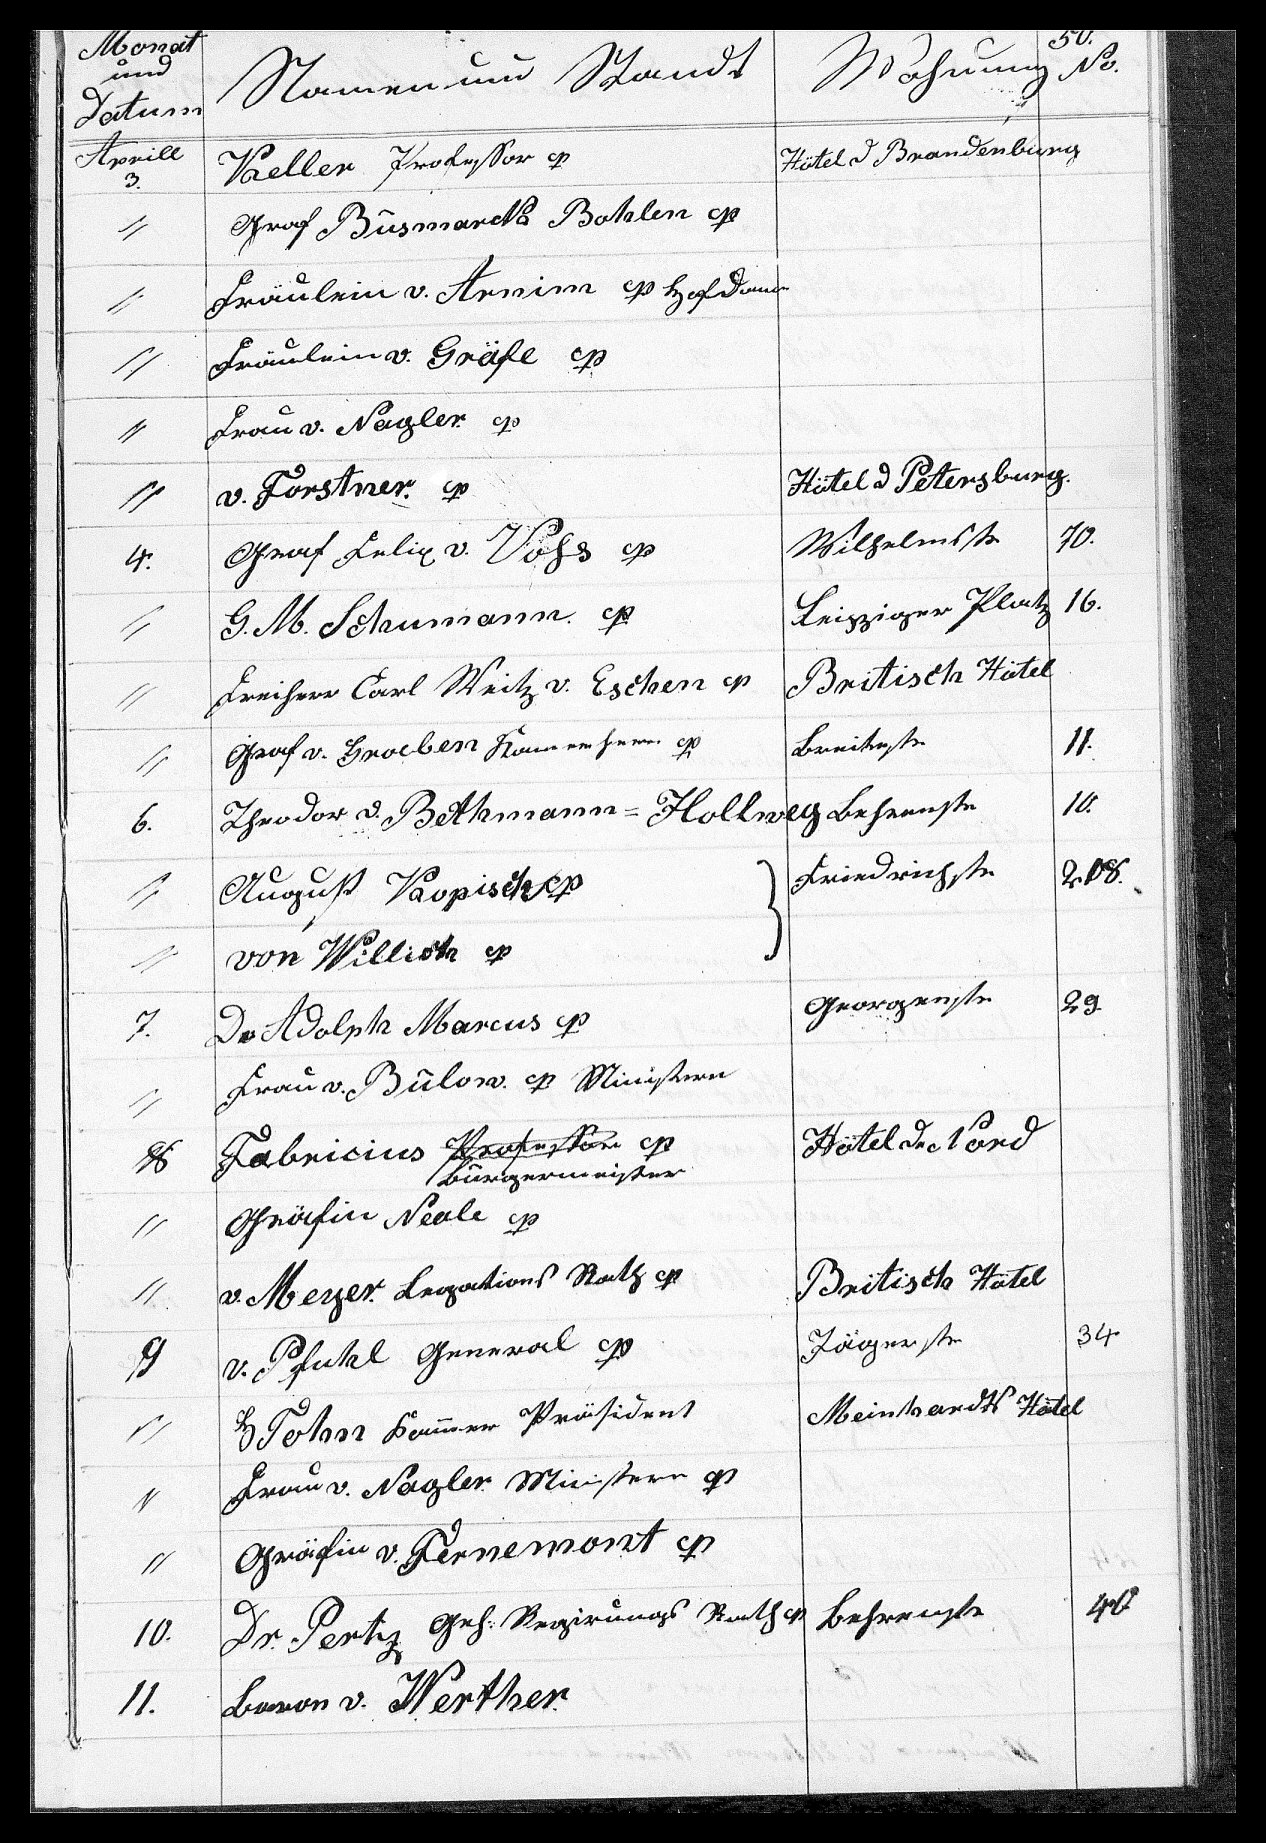 50.
Monat und Datum Namen und Standt Wohnung No.
Aprill 3. Keller Professor cp Hôtel d Brandenburg
" Graf Büsmarck Bohlen cp
" Fräulein v. Arnim cp Hofdame
" Fräulein v. Gräfe cp
" Frau v. Nagler cp
" v. Forstner. cp Hôtel d Petersburg.
4. Graf Felix v. Vohs cp Wilhelmstr 70.
" G. M. Schumann. cp Leipziger Platz 16.
" Freiherr Carl Weitz v. Eschen cp Britisch Hôtel
" Graf v. Groeben Kammerherr cp Breitestr 11.
6. Theodor v. Bethmann=Hollweg Behrenstr 10.
" August Kopisch cp } Friedrichstr 208.
" von Willich cp
7. Dr Adolph Marcus cp Georgenstr 29.
" Frau v. Bülow. cp Ministern
8 Fabricius Professor cp Hôtel de Nord
Bürgermeister
" Gräfin Neale cp
" v. Meyer. Legations Rath cp Britisch Hôtel
9 v. Pfuhl General cp Jägerstr 34
" Tohn Kammer Präsident Meinhardts Hôtel
" Frau v. Nagler Ministern cp
" Gräfin v. Fernemont cp
10. Dr. Pertz Geh: Regirungs Rath cp Behrenstr 40
11. Baron v. Werther.